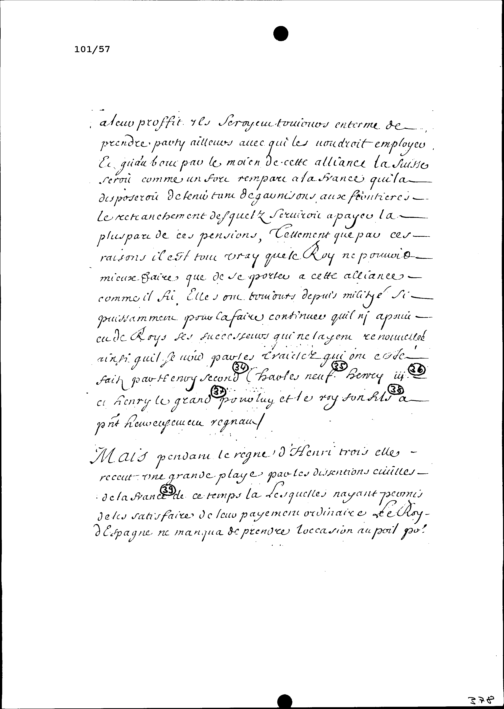 101/57
a leur proffit ils seroyent tousiours en terme de
prendre party ailleurs avec qui les voudroit employer
Et qu'au bout par le moien de cette alliance la Suisse
seroit comme un fort rempare a la France qui la
disposeroit de tenir tant de garnisons aux frontieres
le retranchement desquelz serviroit a payer la
pluspart de ces pensions, Tellement que par ces
raisons il est tout vray que le Roy ne pouvoit
mieux faire que de se porter a cette alliance
comme il fit. Elles ont tousiours depuis milité si
puissamment pour la faire continuer qu'il n'y a point
eu de Roys ses successeurs qui ne layent renouvellée
ainsi qu'il se void par les Traictez qui ont esté
fait par Henry Second (34) Charles neuf (35) Henry iij (36)
et henry le grand (37) pour luy et le roy son fils (38) a
pnt heureusement regnant/
Mais pendant le regne d'Henri trois elles
receut une grande playe par les dissentions civilles
de la France (39) de ce temps la Lesquelles n'ayant permis
de les satisfaire de leur payement ordinaire Le Roy
d'Espagne ne manqua de prendre l'occasion au poil po.r
378